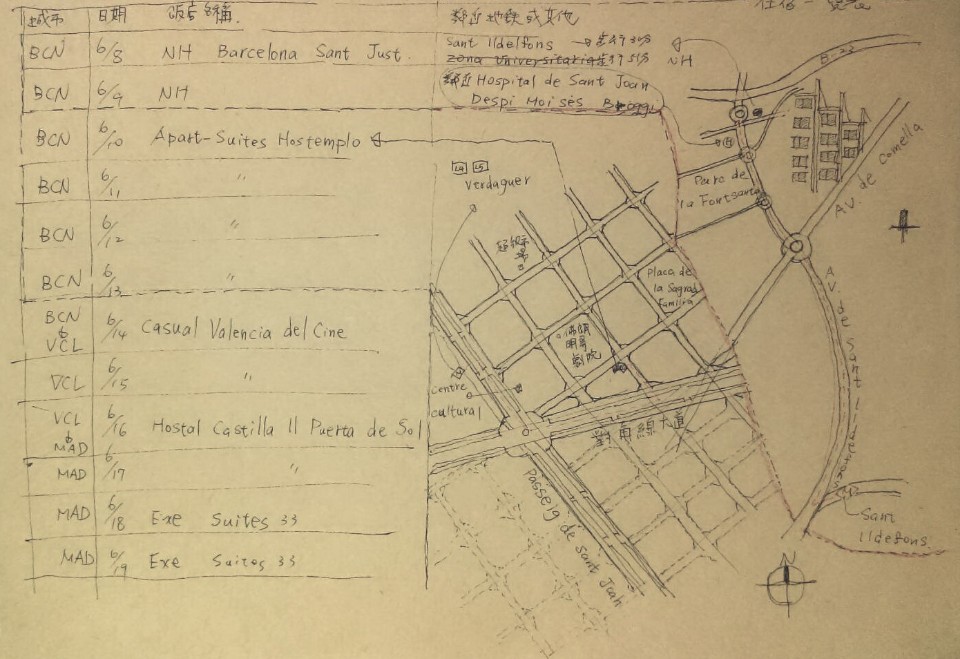 城市 日期 飯店名稱 鄰近地鐵或其他
住宿一覽表
BCN 6/8 NH Barcelona Sant Just.
Sant Ildelfons → 步行
zona Universitaria 步行
NH
BCN 6/9 NH
鄰近 Hospital de Sant Joan
Despi Moisès Broggi
BCN 6/10 Apart-Suites Hostemplo
BCN 6/11 "
BCN 6/12 "
BCN 6/13 "
BCN to VCL 6/14 Casual Valencia del Cine
VCL 6/15 "
VCL to MAD 6/16 Hostal Castilla II Puerta de Sol
MAD 6/17 "
MAD 6/18 Exe Suites 33
MAD 6/19 Exe Suites 33
B-23
L4 L5
Verdaguer
H
Parc de
la Fontsanta
AV. de Cornella
超級市場
Placa de
la Sagrad
Familia
佛朗明哥劇院
Centre
cultural
對角線大道
Passeig de sant Joan
AV de Sant Ildefons
Sant
Ildefons
N